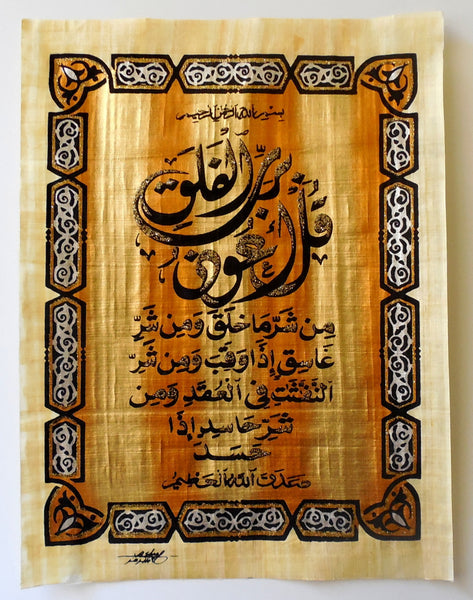 بسم الله الرحمن الرحيم
قُلْ أَعُوذُ بِرَبِّ الْفَلَقِ
مِن شَرِّ مَا خَلَقَ وَمِن شَرِّ
غَاسِقٍ إِذَا وَقَبَ وَمِن شَرِّ
النَّفَّٰثَٰتِ فِي الْعُقَدِ وَمِن
شَرِّ حَاسِدٍ إِذَا
حَسَدَ
صدق الله العظيم